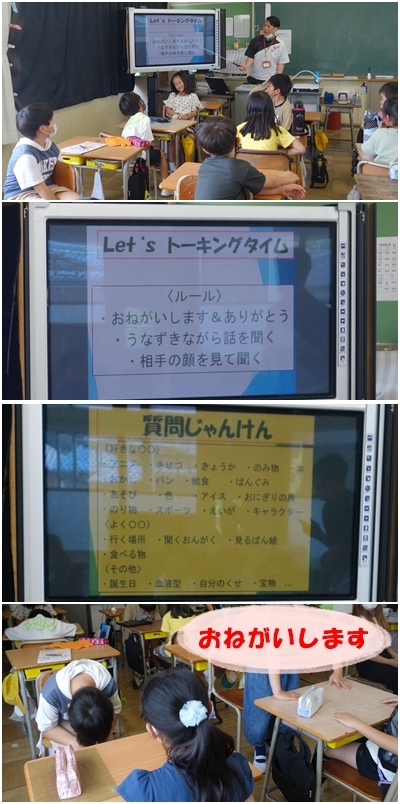 Let's トーキングタイム
Let's トーキングタイム
〈ルール〉
・おねがいします＆ありがとう
・うなずきながら話を聞く
・相手の顔を見て聞く
質問じゃんけん
〈好きな〇〇〉
・アニメ ・きせつ ・きょうか ・のみ物
・おかし ・パン ・給食 ・ばんぐみ
・あそび ・色 ・アイス ・おにぎりの具
・のり物 ・スポーツ ・えいが ・キャラクター
〈よく〇〇〉
・行く場所 ・聞くおんがく ・見るばん組
・食べる物
〈その他〉
・誕生日 ・血液型 ・自分のくせ ・宝物 …
おねがいします